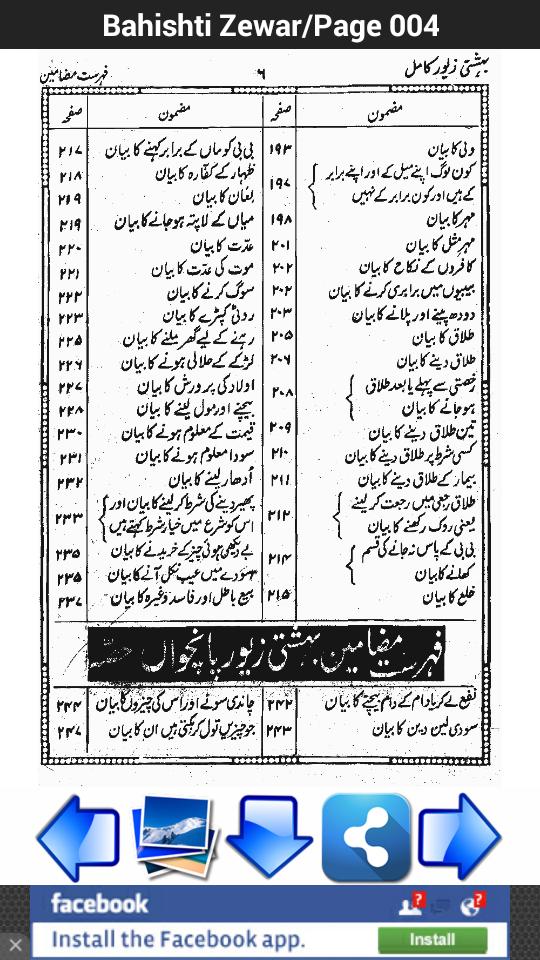 Bahishti Zewar/Page 004
بہشتی زیور کامل
۶
فہرست مضامین
مضمون
صفحہ
ولی کا بیان
۱۹۳
کون لوگ اپنے میل کے اور اپنے برابر
کے ہیں اور کون برابر کے نہیں
۱۹۷
مہر کا بیان
۱۹۸
مہر مثل کا بیان
۲۰۱
کافروں کے نکاح کا بیان
۲۰۲
بیبیوں میں برابری کرنے کا بیان
۲۰۲
دودھ پینے اور پلانے کا بیان
۲۰۳
طلاق کا بیان
۲۰۵
طلاق دینے کا بیان
۲۰۶
رخصتی سے پہلے یا بعد طلاق
ہو جانے کا بیان
۲۰۸
تین طلاق دینے کا بیان
۲۰۹
کسی شرط پر طلاق دینے کا بیان
۲۱۰
بیمار کے طلاق دینے کا بیان
۲۱۱
طلاق رجعی میں رجعت کر لینے
یعنی روک رکھنے کا بیان
۲۱۲
بی بی کے پاس نہ جانے کی قسم
کھانے کا بیان
۲۱۴
خلع کا بیان
۲۱۵
مضمون
صفحہ
بی بی کو ماں کے برابر کہنے کا بیان
۲۱۷
ظہار کے کفارہ کا بیان
۲۱۸
لعان کا بیان
۲۱۹
میاں کے لاپتہ ہو جانے کا بیان
۲۱۹
عدّت کا بیان
۲۲۰
موت کی عدّت کا بیان
۲۲۱
سوگ کرنے کا بیان
۲۲۲
روٹی کپڑے کا بیان
۲۲۳
رہنے کے لیے گھر ملنے کا بیان
۲۲۵
لڑکے کے حلالی ہونے کا بیان
۲۲۶
اولاد کی پرورش کا بیان
۲۲۷
بیچنے اور مول لینے کا بیان
۲۲۸
قیمت کے معلوم ہونے کا بیان
۲۳۰
سودا معلوم ہونے کا بیان
۲۳۱
اُدھار لینے کا بیان
۲۳۲
پھیر دینے کی شرط کر لینے کا بیان اور
اس کو شرع میں خیار شرط کہتے ہیں
۲۳۳
بے دیکھی ہوئی چیز کے خریدنے کا بیان
۲۳۵
سودے میں عیب نکل آنے کا بیان
۲۳۵
بیع باطل اور فاسد وغیرہ کا بیان
۲۳۷
فہرست مضامین بہشتی زیور پانچواں حصّہ
نفع لے کر یا دام کے دام بیچنے کا بیان
۲۴۲
سودی لین دین کا بیان
۲۴۳
چاندی سونے اور اس کی چیزوں کا بیان
۲۴۴
جو چیزیں تول کر بکتی ہیں ان کا بیان
۲۴۷
facebook
?
?
Install the Facebook app.
Install